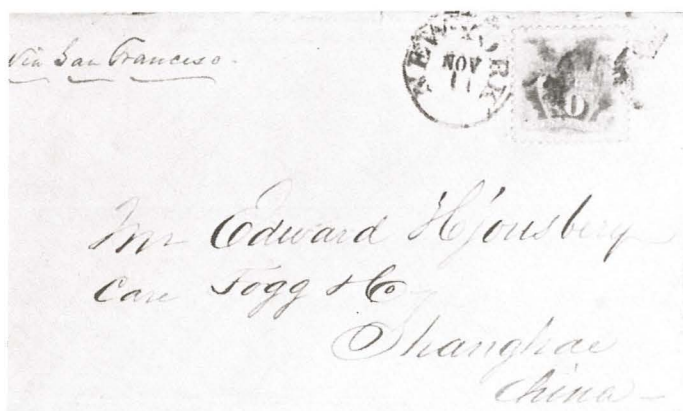 Via San Francisco.
NEW-YORK
NOV
11
10
Mr Edward
Care Fogg & Co
Shanghae
China